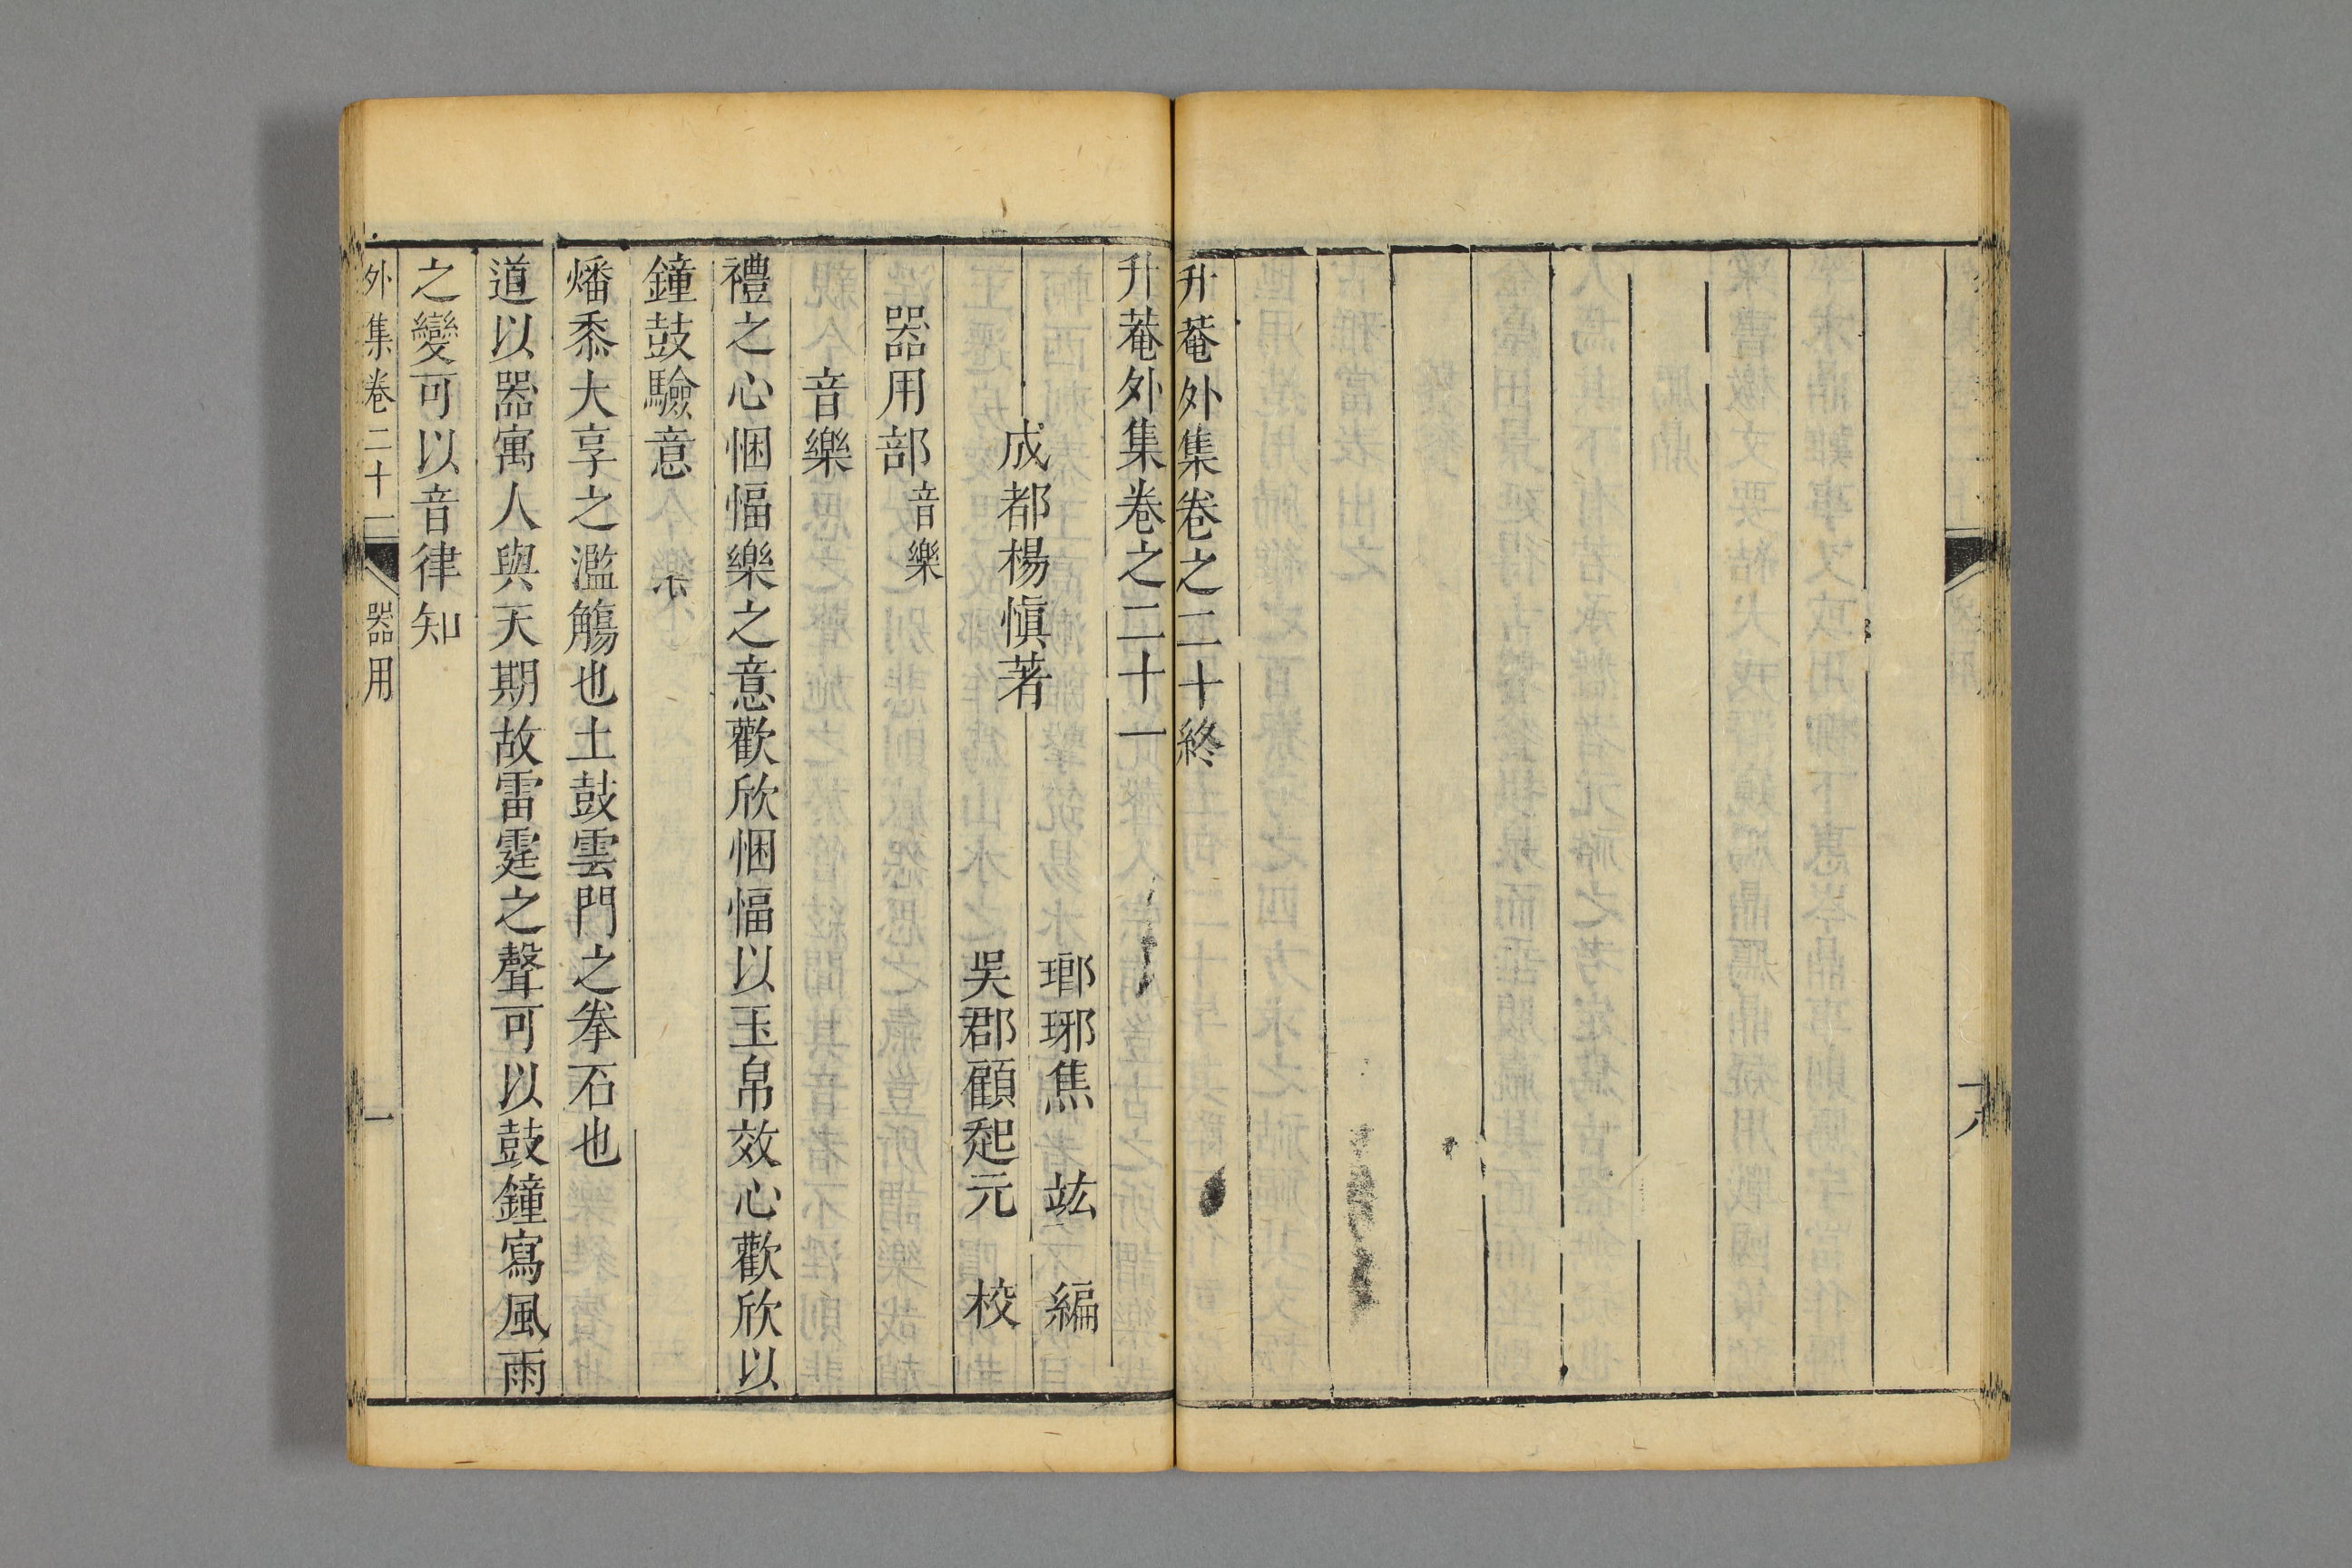 升菴外集卷之二十終
升菴外集卷之二十一
成都楊愼著
瑯琊焦 竑 編
吳郡顧起元 校
器用部 音樂
音樂
禮之心悃愊樂之意歡欣悃愊以玉帛效心歡欣以
鐘鼓驗意
燔黍大享之濫觴也土鼓雲門之拳石也
道以器寓人與天期故雷霆之聲可以鼓鐘寫風雨
之變可以音律知
外集卷二十一 器用 一